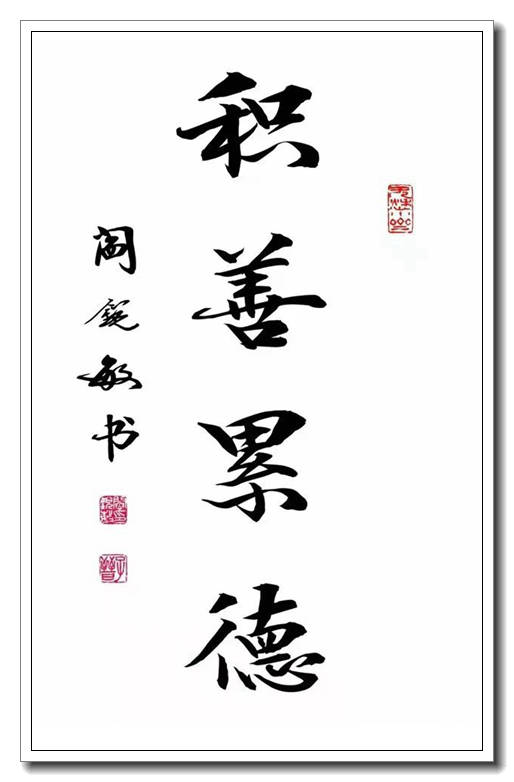 积善累德
阎锐敏书